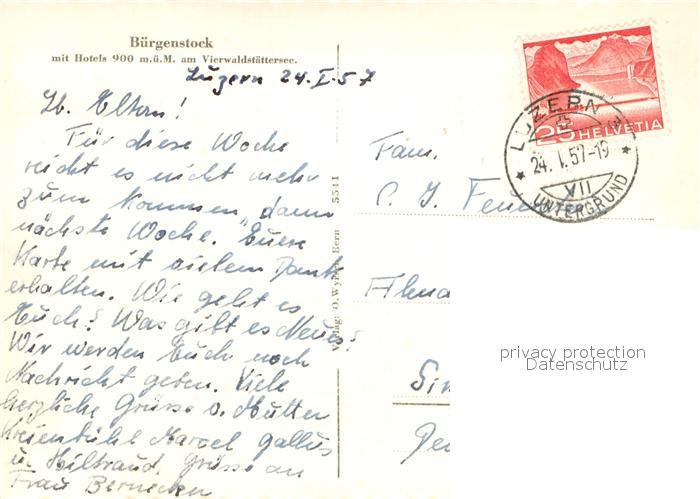 Bürgenstock
mit Hotels 900 m.ü.M. am Vierwaldstättersee.
Luzern 24.I.57
Lb. Eltern!
Für diese Woche
reicht es nicht mehr
zum kommen, dann
nächste Woche. Euere
Karte mit vielem Dank
erhalten. Wie geht es
Euch? Was gibt es Neues?
Wir werden Euch noch
Nachricht geben. Viele
herzliche Grüsse v. Mutter
Kreienbühl Marcel Gallus
u. Hiltraud. Grüsse an
Frau
Verlag: O. Wyss, Bern 5541
25 HELVETIA
LUZERN
24.I.57-19
VII
UNTERGRUND
Fam.
C. J.
privacy protection
Datenschutz